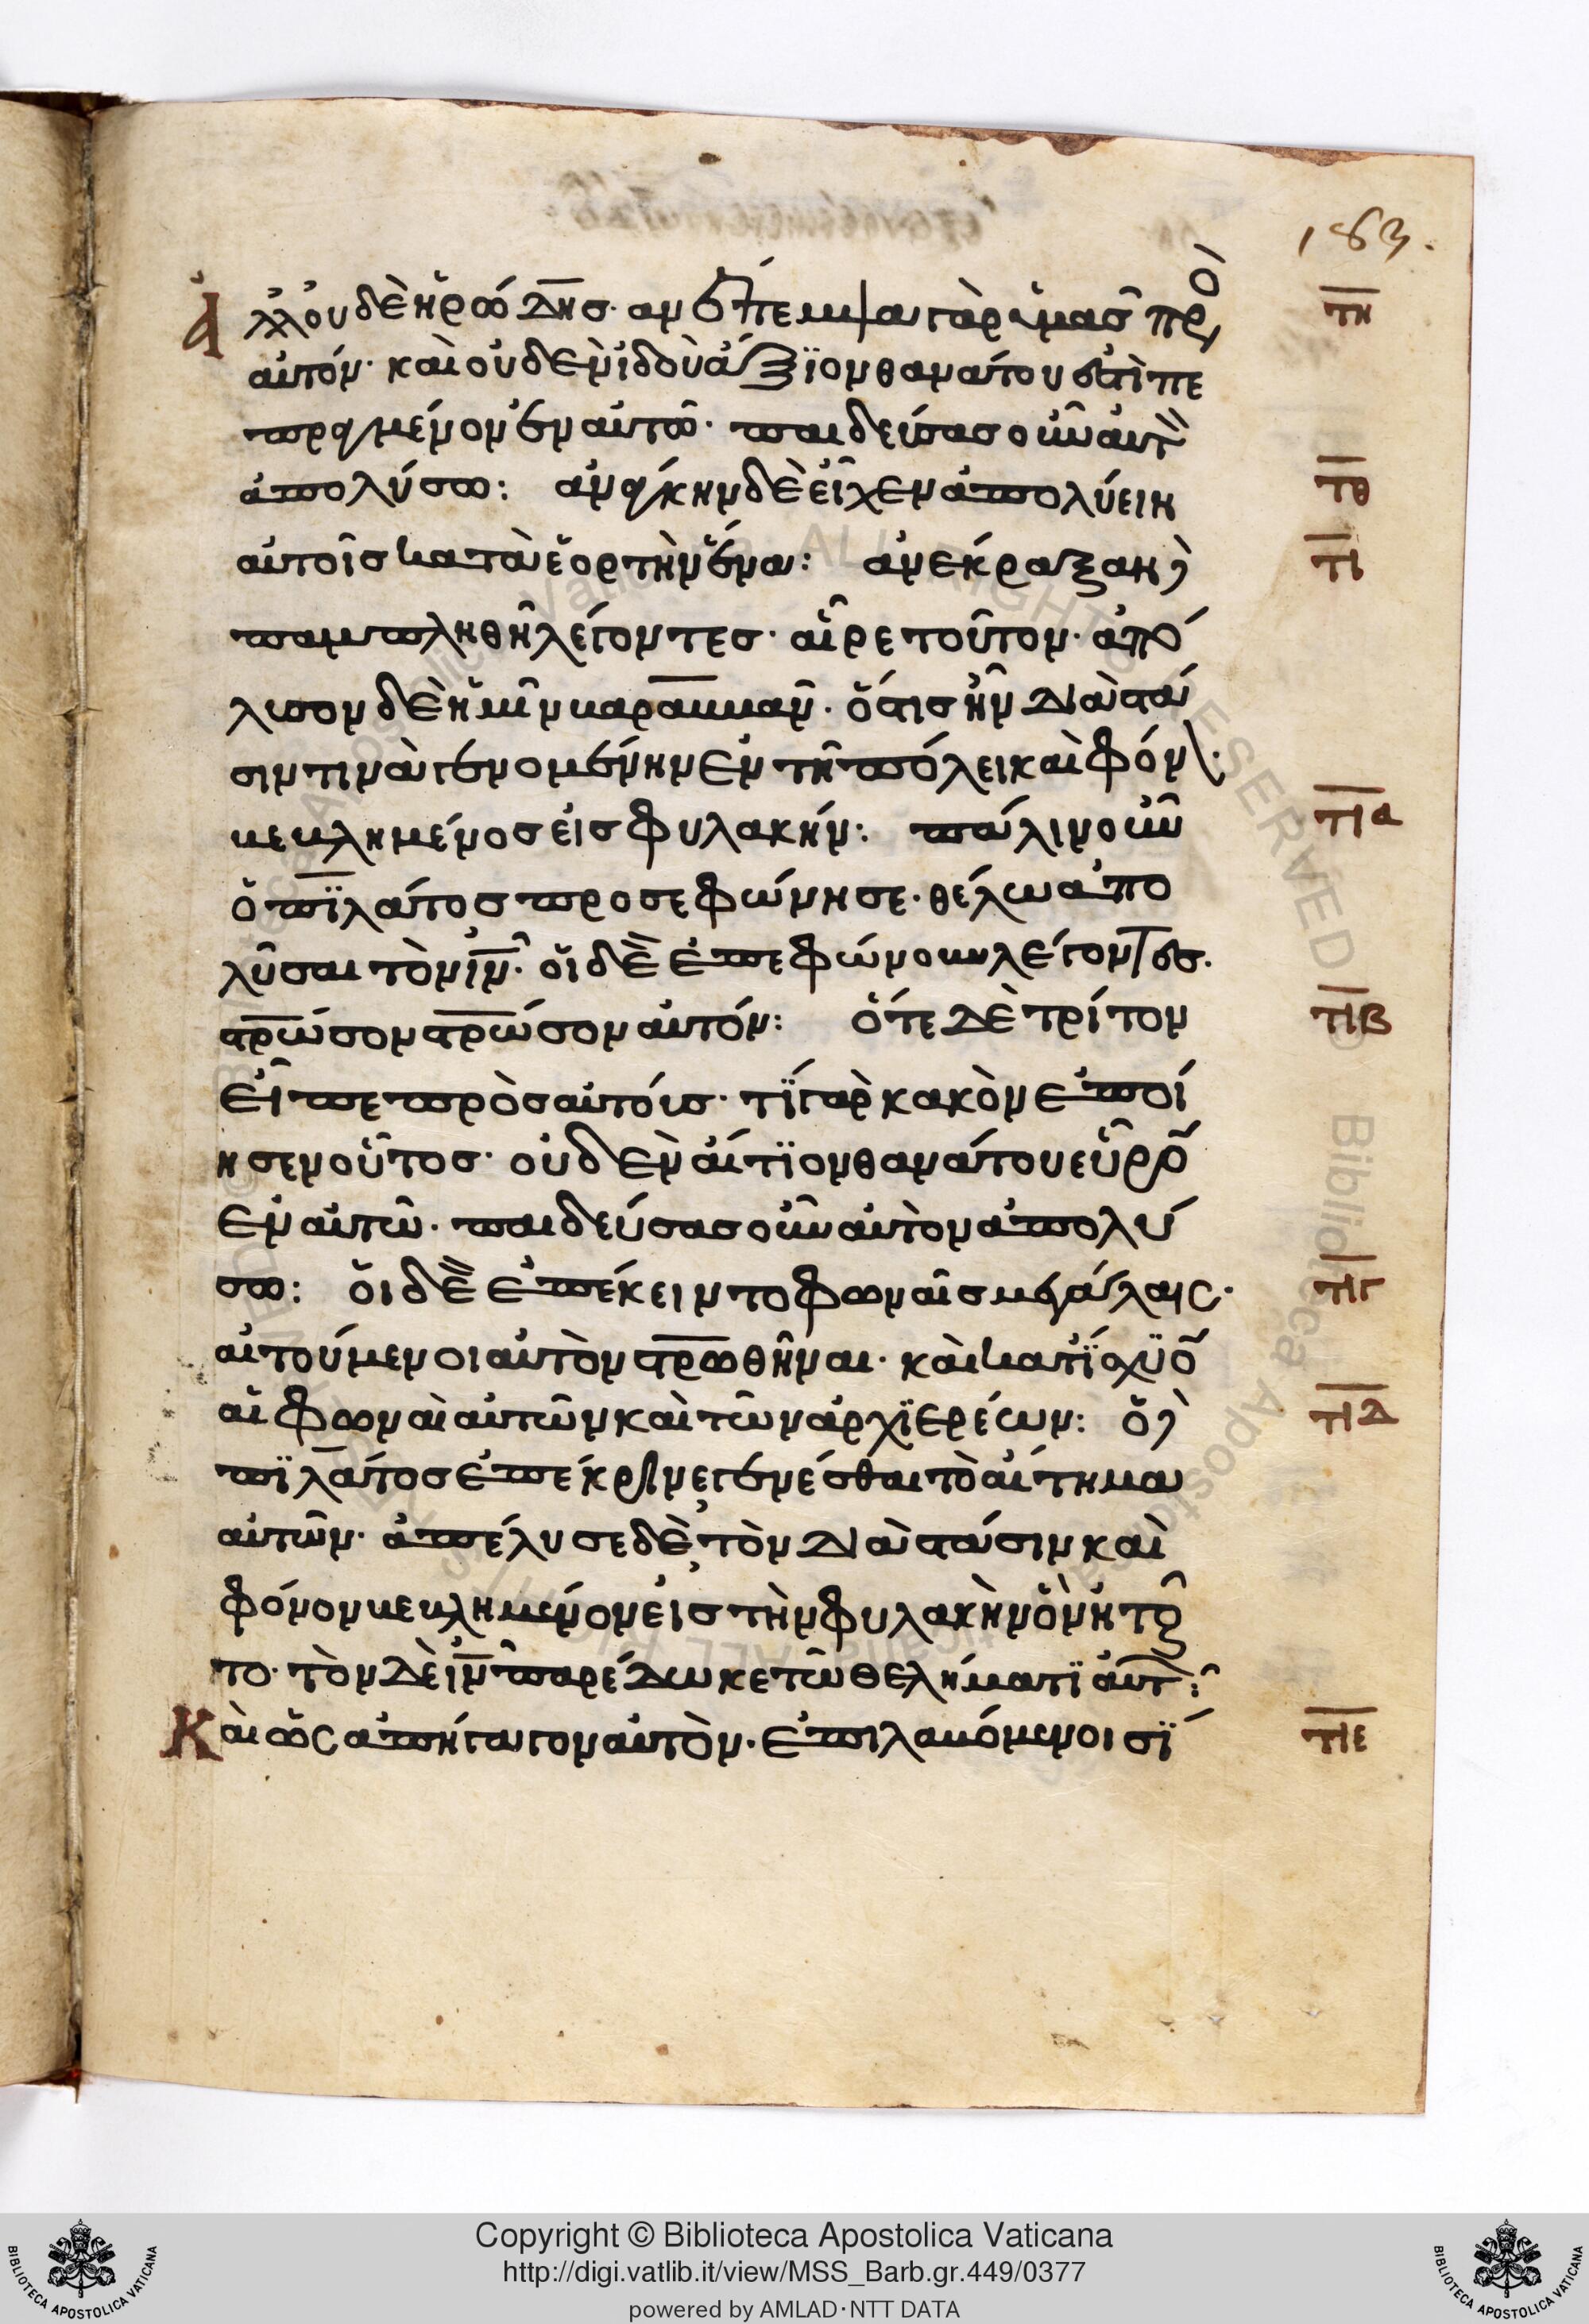 183.
ἀλλ' οὐδὲ ἡρώδης· ἀνέπεμψα γὰρ ὑμᾶς πρὸ πη
αὐτόν· καὶ οὐδὲν ἰδοὺ ἄξϊον θανάτου ἐστὶ πε
πραγμένον ἐν αὐτῶ· παιδεύσας οὖν αὐτ
ἀπολύσω: ἀνάγκην δὲ εἶχεν ἀπολύειν πθ
αὐτοῖς κατὰ ἑορτὴν ἕνα: ἀνέκραξαν δὲ π
παμπληθῆ λέγοντες· αἶρε τοῦτον· ἀπό
λυσον δὲ ἡμῖν βαραββᾶν· ὅστις ἦν διὰ στά
σιν τινὰ γενομένην ἐν τῆ πόλει καὶ φόνον·
βεβλημένος εἰς φυλακήν: πάλιν οὖν πα
ὁ πϊλάτος προσεφώνησε· θέλων ἀπο
λῦσαι τὸν ιν· οἱ δὲ ἐπεφώνουν λέγοντες.
στρωσον στρωσον αὐτόν: ὅτε δὲ τρίτον πβ
εἶπε πρὸς αὐτούς· τΐ γὰρ κακὸν ἐποί
ησεν οὗτος· οὐδὲν αἴτϊον θανάτου εὗρο
ἐν αὐτῶ· παιδεύσας οὖν αὐτὸν ἀπολύ
σω: οἱ δὲ ἐπέκειντο φωναῖς μεγάλαις· πγ
αἰτούμενοι αὐτὸν στρωθῆναι· καὶ κατΐσχϋο
αἱ φωναὶ αὐτῶν καὶ τῶν ἀρχϊερέων: ὁ δὲ πδ
πϊλάτος ἐπέκρινε γενέσθαι τὸ αἴτημα
αὐτῶν· ἀπέλυσε δὲ τὸν διὰ στάσιν καὶ
φόνον βεβλημένον εἰς τὴν φυλακὴν ὃν ἠτοῦ
το· τὸν δὲ ιν παρέδωκε τῶ θελήματϊ αὐτ:
Καὶ ὡς ἀπήγαγον αὐτὸν· ἐπιλαβόμενοι σΐ πε
Copyright © Biblioteca Apostolica Vaticana
http://digi.vatlib.it/view/MSS_Barb.gr.449/0377
powered by AMLAD·NTT DATA